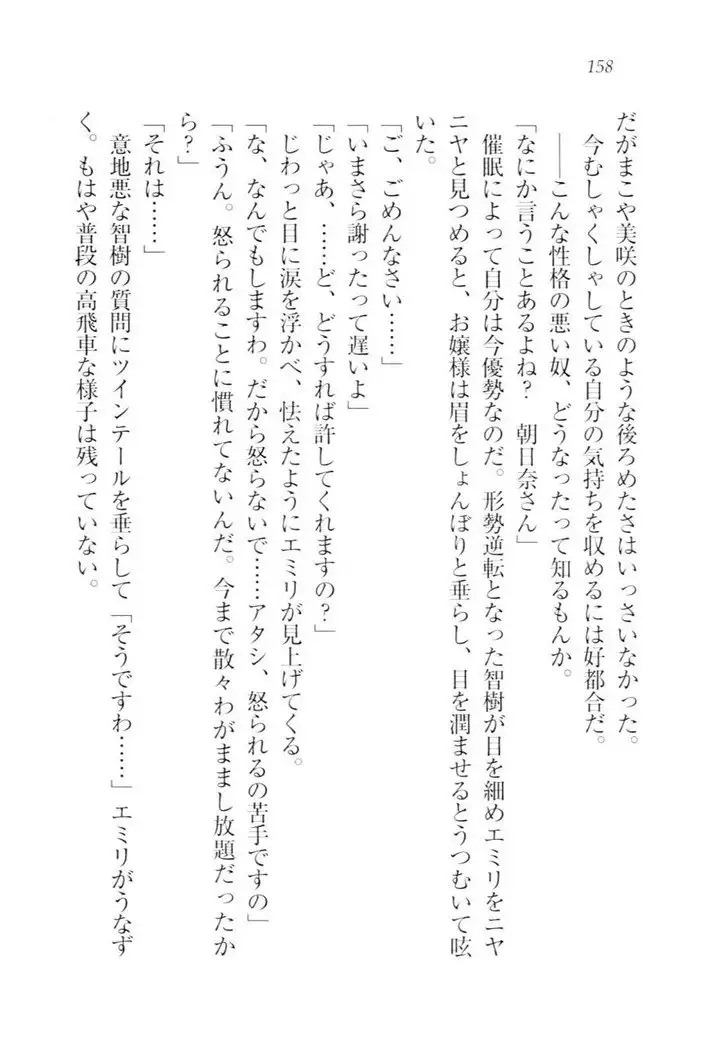 158
だがまこや美咲のときのような後ろめたさはいっさいなかった。
今むしゃくしゃしている自分の気持ちを収めるには好都合だ。
――こんな性格の悪い奴、どうなったって知るもんか。
「なにか言うことあるよね？　朝日奈さん」
催眠によって自分は今優勢なのだ。形勢逆転となった智樹が目を細めエミリをニヤ
ニヤと見つめると、お嬢様は眉をしょんぼりと垂らし、目を潤ませるとうつむいて呟
いた。
「ご、ごめんなさい……」
「いまさら謝ったって遅いよ」
「じゃあ、……ど、どうすれば許してくれますの？」
じわっと目に涙を浮かべ、怯えたようにエミリが見上げてくる。
「な、なんでもしますわ。だから怒らないで……アタシ、怒られるの苦手ですの」
「ふうん。怒られることに慣れてないんだ。今まで散々わがままし放題だったか
ら？」
「それは……」
意地悪な智樹の質問にツインテールを垂らして「そうですわ……」エミリがうなず
く。もはや普段の高飛車な様子は残っていない。